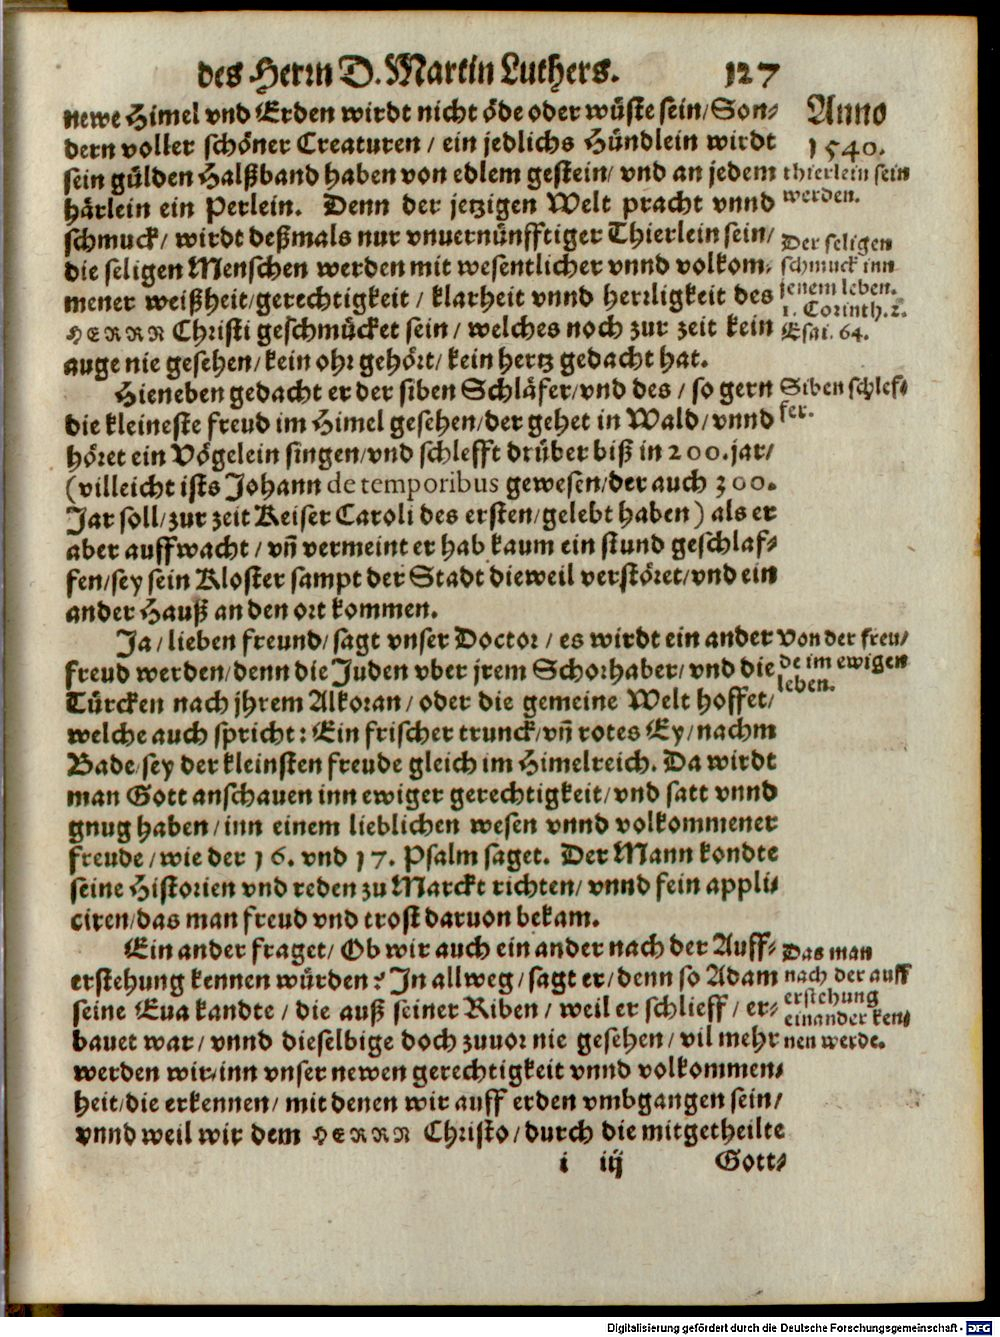 des Herrn D. Martin Luthers. 127
newe Himel vnd Erden wirdt nicht öde oder wüste sein/ Son-
dern voller schöner Creaturen / ein jedlichs Hündlein wirdt
sein gülden Halßband haben von edlem gestein/ vnd an jedem
härlein ein Perlein. Denn der jetzigen Welt pracht vnnd
schmuck/ wirdt deßmals nur vnuernünfftiger Thierlein sein/
die seligen Menschen werden mit wesentlicher vnnd volkom-
mener weißheit/ gerechtigkeit / klarheit vnnd herrligkeit des
HERRN Christi geschmücket sein / welches noch zur zeit kein
auge nie gesehen/ kein ohr gehört/ kein hertz gedacht hat.
Anno
1540.
thierlein sein
werden.
Der seligen
schmuck inn
jenem leben.
1. Corinth. 2.
Esai. 64.
Hieneben gedacht er der siben Schläfer/ vnd des / so gern
die kleineste freud im Himel gesehen/ der gehet in Wald/ vnnd
höret ein Vögelein singen/ vnd schlefft drüber biß in 200. jar/
(villeicht ists Johann de temporibus gewesen/ der auch 300.
Jar soll/ zur zeit Keiser Caroli des ersten/ gelebt haben) als er
aber auffwacht / vñ vermeint er hab kaum ein stund geschlaf-
fen/ sey sein Kloster sampt der Stadt dieweil verstöret/ vnd ein
ander Hauß an den ort kommen.
Siben schlef-
fer.
Ja / lieben freund/ sagt vnser Doctor / es wirdt ein ander
freud werden/ denn die Juden vber jrem Schorhaber/ vnd die
Türcken nach jhrem Alkoran / oder die gemeine Welt hoffet/
welche auch spricht: Ein frischer trunck/ vñ rotes Ey/ nachm
Bade/ sey der kleinsten freude gleich im Himelreich. Da wirdt
man Gott anschauen inn ewiger gerechtigkeit/ vnd satt vnnd
gnug haben / inn einem lieblichen wesen vnnd volkommener
freude / wie der 16. vnd 17. Psalm saget. Der Mann kondte
seine Historien vnd reden zu Marckt richten/ vnnd fein appli-
ciren/ das man freud vnd trost daruon bekam.
Von der freu-
de im ewigen
leben.
Ein ander fraget/ Ob wir auch einander nach der Auff-
erstehung kennen würden? In allweg / sagt er/ denn so Adam
seine Eua kandte / die auß seiner Riben / weil er schlieff / er-
bauet war / vnnd dieselbige doch zuuor nie gesehen / vil mehr
werden wir/ inn vnser newen gerechtigkeit vnnd volkommen-
heit/ die erkennen/ mit denen wir auff erden vmbgangen sein/
vnnd weil wir dem HERRN Christo / durch die mitgetheilte
Das man
nach der auff
erstehung
einander ken-
nen werde.
i iij Gott-
Digitalisierung gefördert durch die Deutsche Forschungsgemeinschaft - DFG